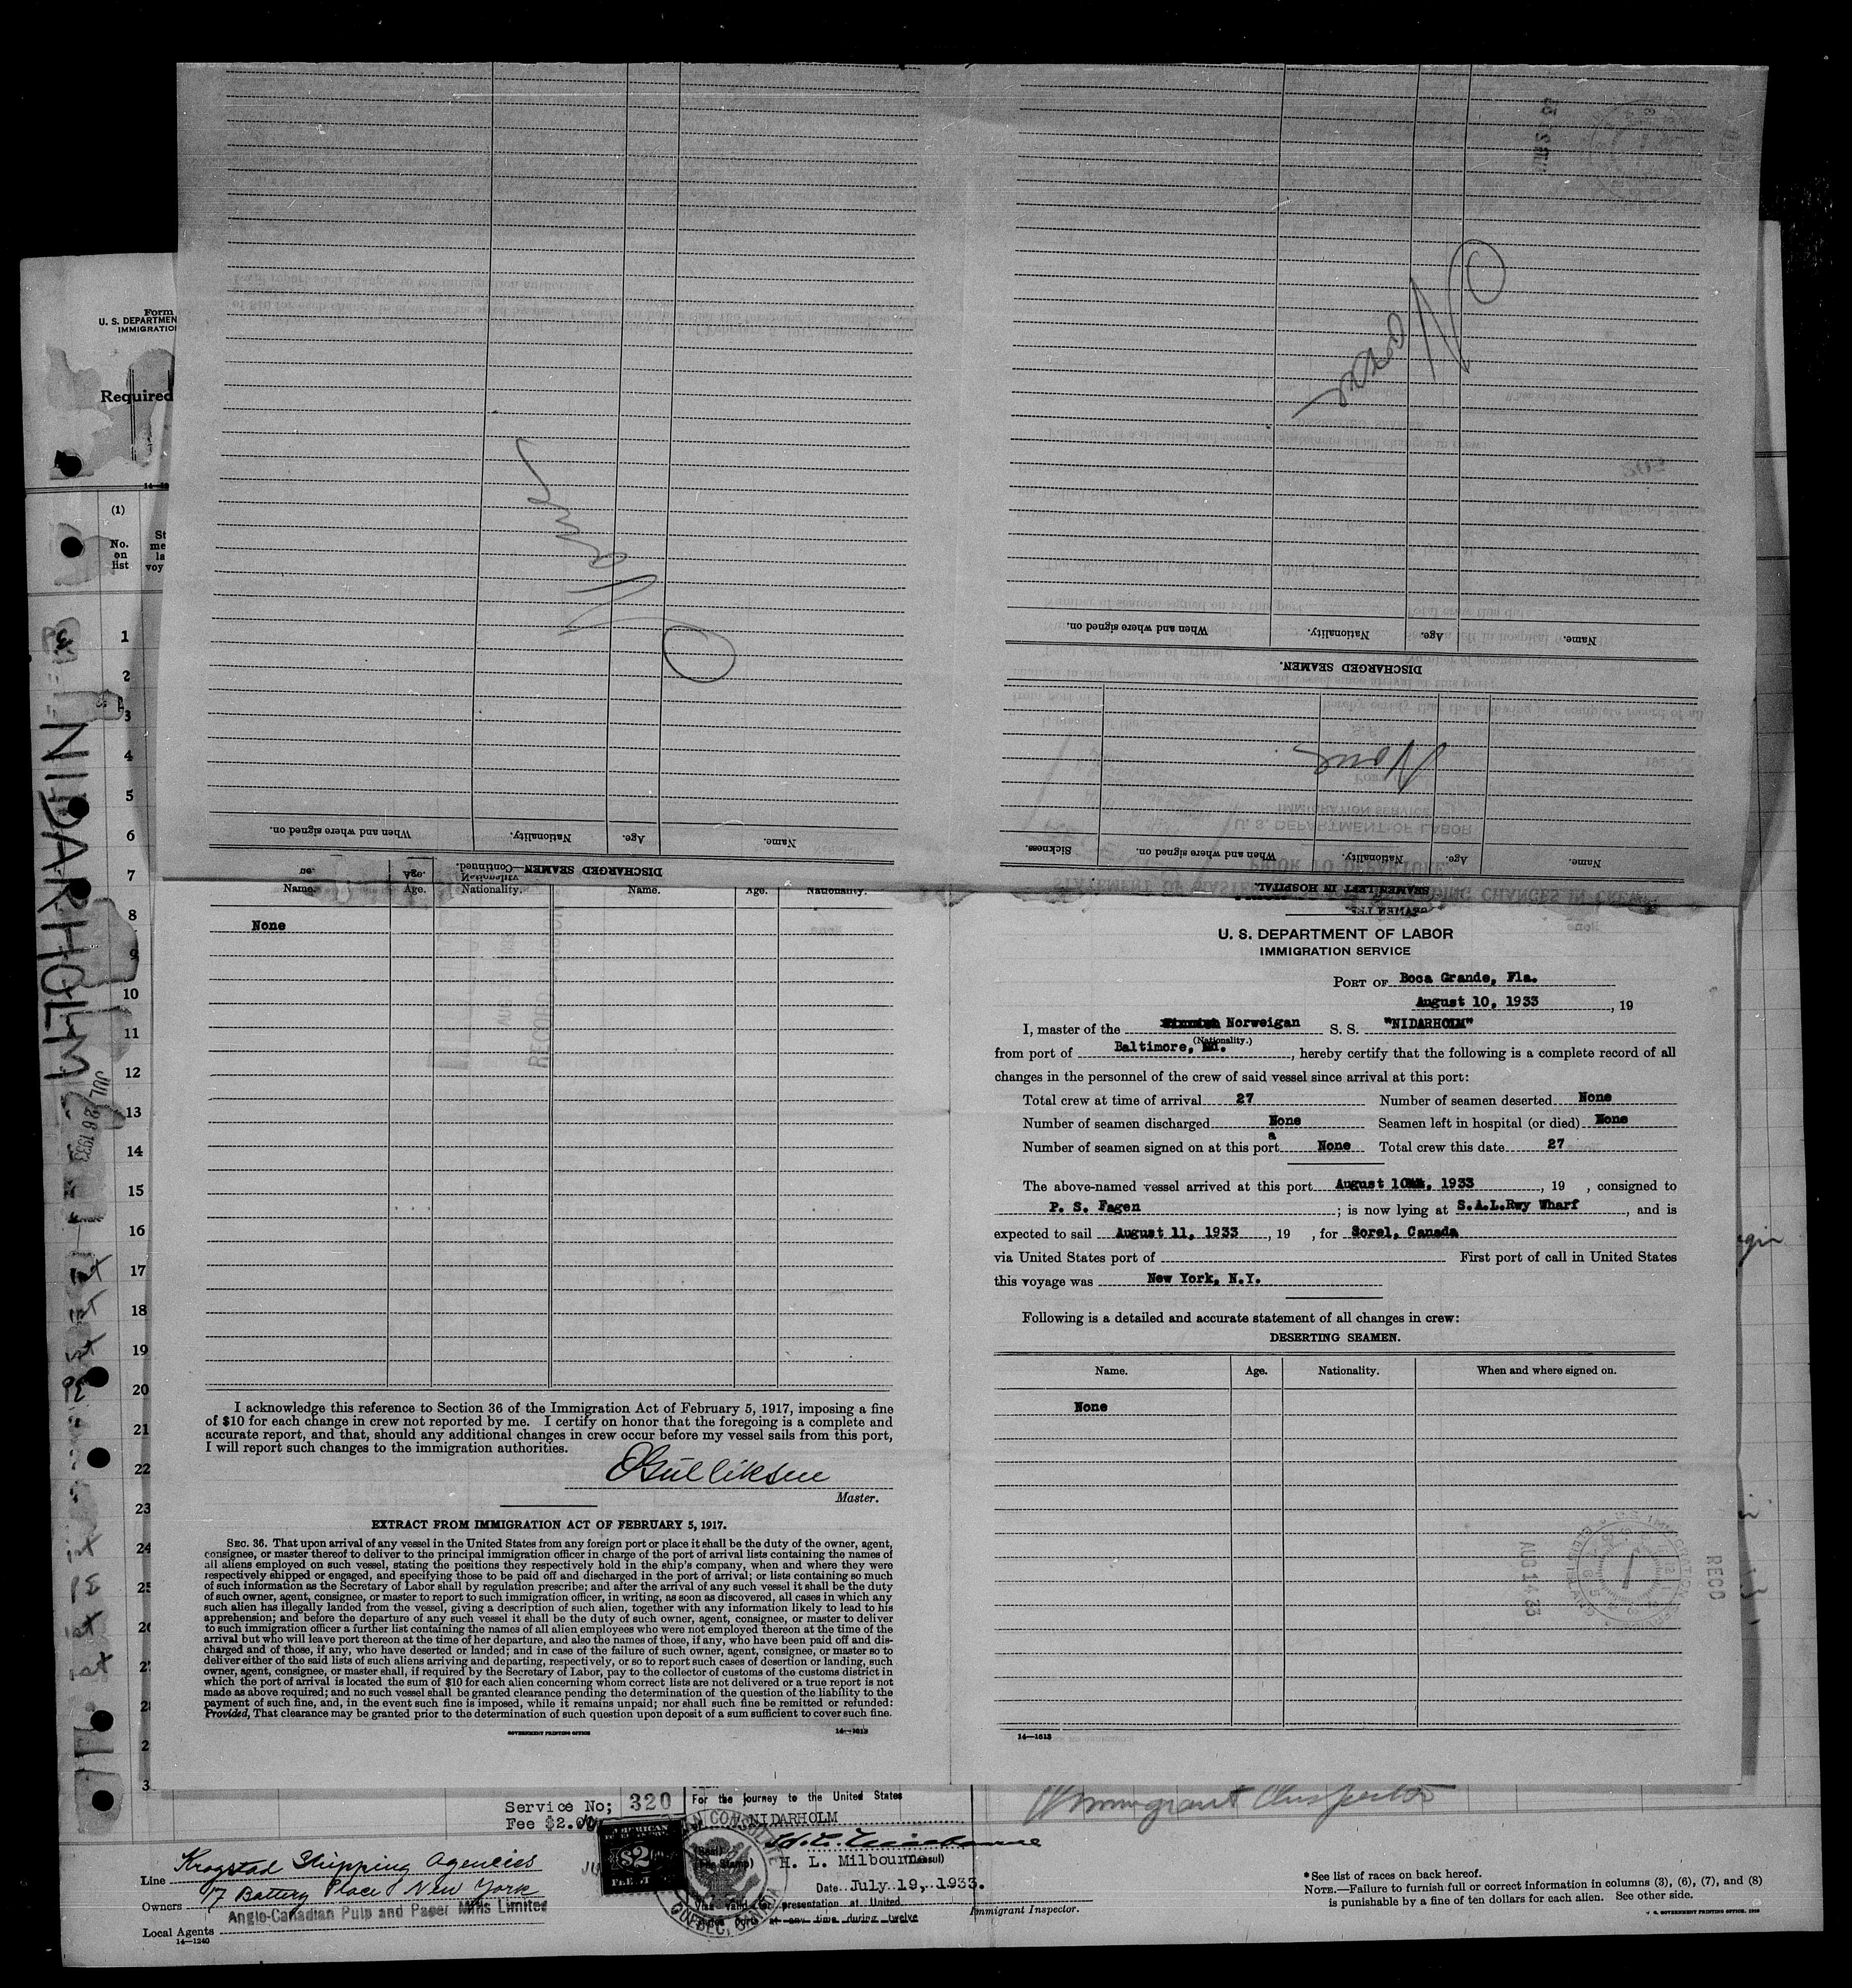 Form
U. S. DEPARTMEN
IMMIGRATIO
Required
(1)
No.
on
list
St
me
la
voy
NIDARHOLM
JUL 26 1933
1
2
3
4
5
6
7
8
9
10
11
12
13
14
15
16
17
18
19
20
21
22
23
24
25
26
2
2
2
3
None
When and where signed on.
Nationality.
Age.
Name.
DISCHARGED SEAMEN—Continued.
None
When and where signed on.
Nationality.
Age.
Name.
DISCHARGED SEAMEN.
None
Sickness.
When and where signed on.
Nationality.
Age.
Name.
SEAMEN LEFT IN HOSPITAL.
Name. Age. Nationality. Name. Age. Nationality.
None
I acknowledge this reference to Section 36 of the Immigration Act of February 5, 1917, imposing a fine
of $10 for each change in crew not reported by me. I certify on honor that the foregoing is a complete and
accurate report, and that, should any additional changes in crew occur before my vessel sails from this port,
I will report such changes to the immigration authorities.
OGulliksen
Master.
EXTRACT FROM IMMIGRATION ACT OF FEBRUARY 5, 1917.
SEC. 36. That upon arrival of any vessel in the United States from any foreign port or place it shall be the duty of the owner, agent,
consignee, or master thereof to deliver to the principal immigration officer in charge of the port of arrival lists containing the names of
all aliens employed on such vessel, stating the positions they respectively hold in the ship's company, when and where they were
respectively shipped or engaged, and specifying those to be paid off and discharged in the port of arrival; or lists containing so much
of such information as the Secretary of Labor shall by regulation prescribe; and after the arrival of any such vessel it shall be the duty
of such owner, agent, consignee, or master to report to such immigration officer, in writing, as soon as discovered, all cases in which any
such alien has illegally landed from the vessel, giving a description of such alien, together with any information likely to lead to his
apprehension; and before the departure of any such vessel it shall be the duty of such owner, agent, consignee, or master to deliver
to such immigration officer a further list containing the names of all alien employees who were not employed thereon at the time of the
arrival but who will leave port thereon at the time of her departure, and also the names of those, if any, who have been paid off and dis-
charged and of those, if any, who have deserted or landed; and in case of the failure of such owner, agent, consignee, or master so to
deliver either of the said lists of such aliens arriving and departing, respectively, or so to report such cases of desertion or landing, such
owner, agent, consignee, or master shall, if required by the Secretary of Labor, pay to the collector of customs of the customs district in
which the port of arrival is located the sum of $10 for each alien concerning whom correct lists are not delivered or a true report is not
made as above required; and no such vessel shall be granted clearance pending the determination of the question of the liability to the
payment of such fine, and, in the event such fine is imposed, while it remains unpaid; nor shall such fine be remitted or refunded:
Provided, That clearance may be granted prior to the determination of such question upon deposit of a sum sufficient to cover such fine.
GOVERNMENT PRINTING OFFICE 14—1613
U. S. DEPARTMENT OF LABOR
IMMIGRATION SERVICE
PORT OF Boca Grande, Fla.
August 10, 1933, 19
I, master of the Norweigan S. S. "NIDARHOLM"
(Nationality.)
from port of Baltimore, Md., hereby certify that the following is a complete record of all
changes in the personnel of the crew of said vessel since arrival at this port:
Total crew at time of arrival 27 Number of seamen deserted None
Number of seamen discharged None Seamen left in hospital (or died) None
Number of seamen signed on at this port None Total crew this date 27
The above-named vessel arrived at this port August 10, 1933, 19 , consigned to
P. S. Fagen ; is now lying at S.A.L.Rwy Wharf, and is
expected to sail August 11, 1933, 19 , for Sorel, Canada
via United States port of First port of call in United States
this voyage was New York, N.Y.
Following is a detailed and accurate statement of all changes in crew:
DESERTING SEAMEN.
Name. Age. Nationality. When and where signed on.
None
AUG 14 33
RECD
14—1613
Service No; 320
Fee $2.00
For the journey to the United States
NIDARHOLM
H. L. Milbourne
(Consul)
Date July 19, 1933.
presentation at United
at any time during twelve
AMERICAN
$2
QUEBEC, CANADA
Immigrant Inspector
Immigrant Inspector.
Line Krogstad Shipping Agencies
17 Battery Place New York
Owners Anglo-Canadian Pulp and Paper Mills Limited
Local Agents
14—1240
*See list of races on back hereof.
NOTE.—Failure to furnish full or correct information in columns (3), (6), (7), and (8)
is punishable by a fine of ten dollars for each alien. See other side.
U. S. GOVERNMENT PRINTING OFFICE